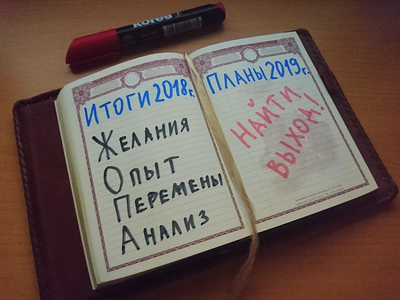 kores
ИТОГИ 2018 г.
ЖЕЛАНИЯ
ОПЫТ
ПЕРЕМЕНЫ
АНАЛИЗ
ПЛАНЫ 2019 г.
НАЙТИ
ВЫХОД!